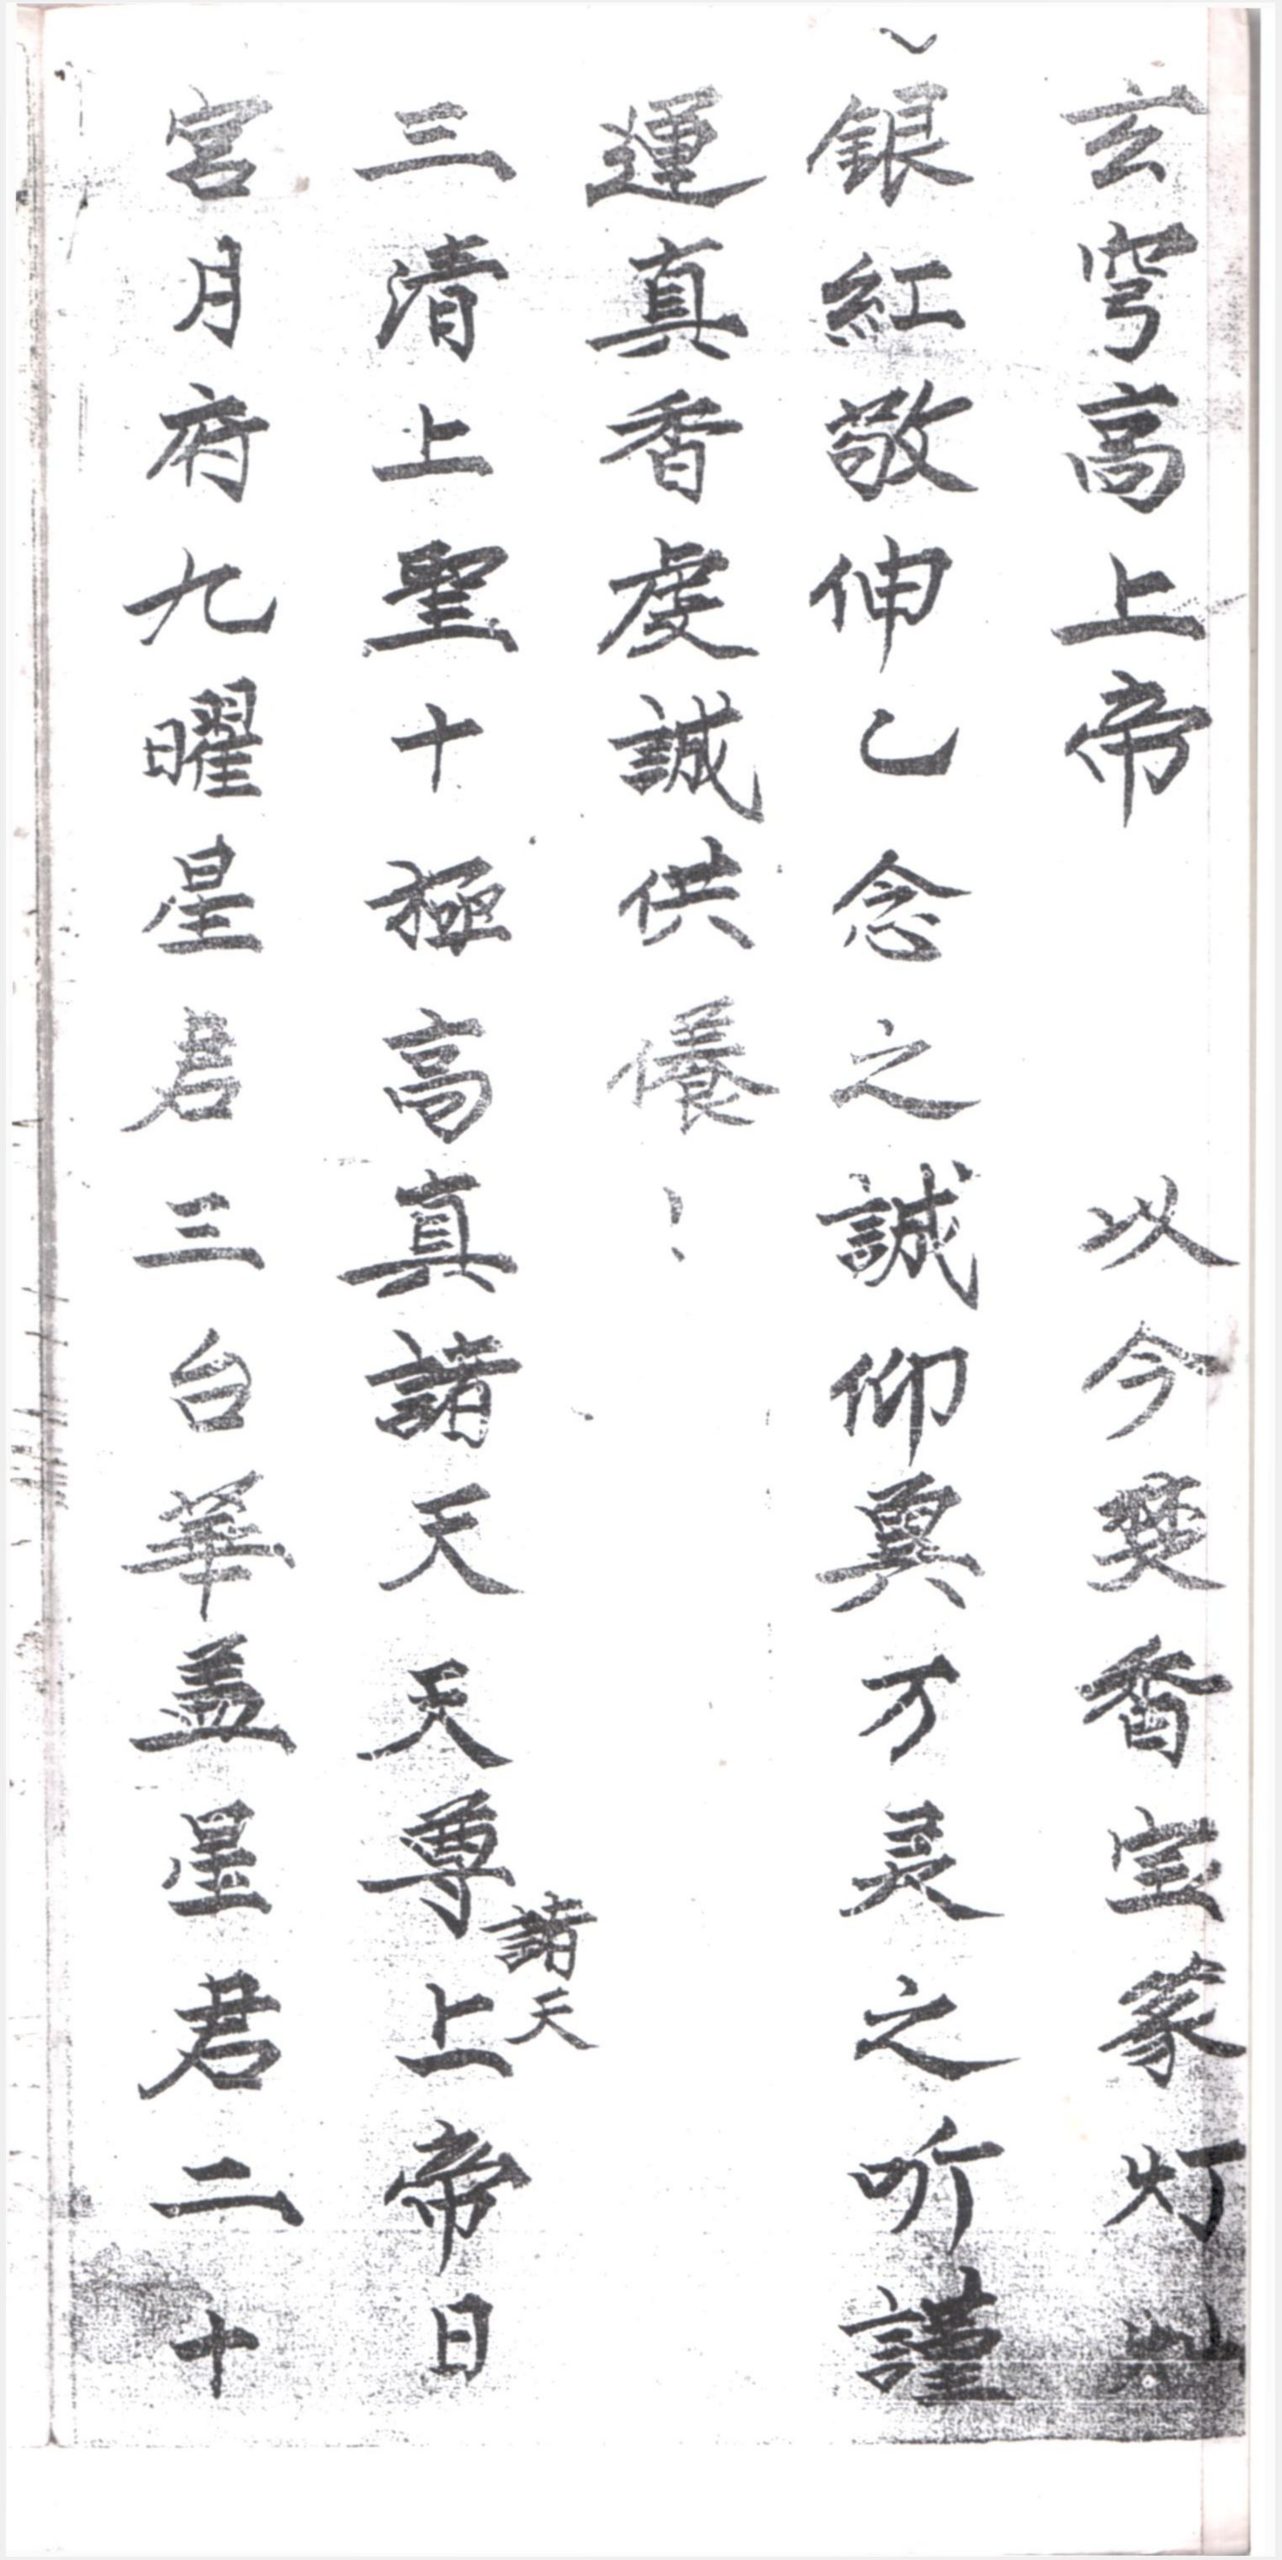 玄穹高上帝　以今焚香宝篆灯灿
銀紅敬伸乙念之誠仰冀万灵之听謹
運真香虔誠供儀
三清上聖十極高真諸天天尊上帝日
諸天
宮月府九曜星君三台華盖星君二十